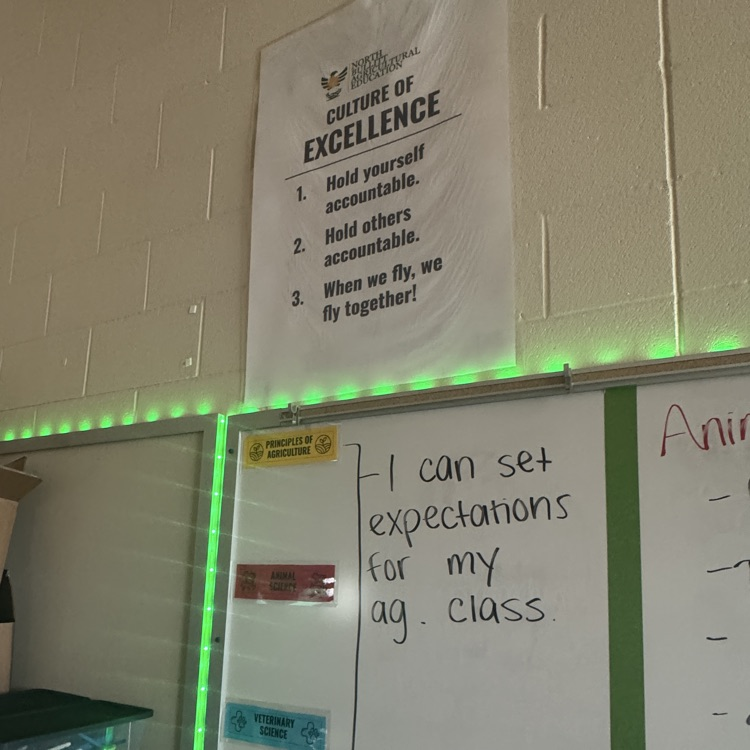 NORTH
BULLITT
AGRICULTURAL
EDUCATION
CULTURE OF
EXCELLENCE
1. Hold yourself
accountable.
2. Hold others
accountable.
3. When we fly, we
fly together!
PRINCIPLES OF
AGRICULTURE
ANIMAL
SCIENCE
VETERINARY
SCIENCE
- I can set
expectations
for my
ag. class.